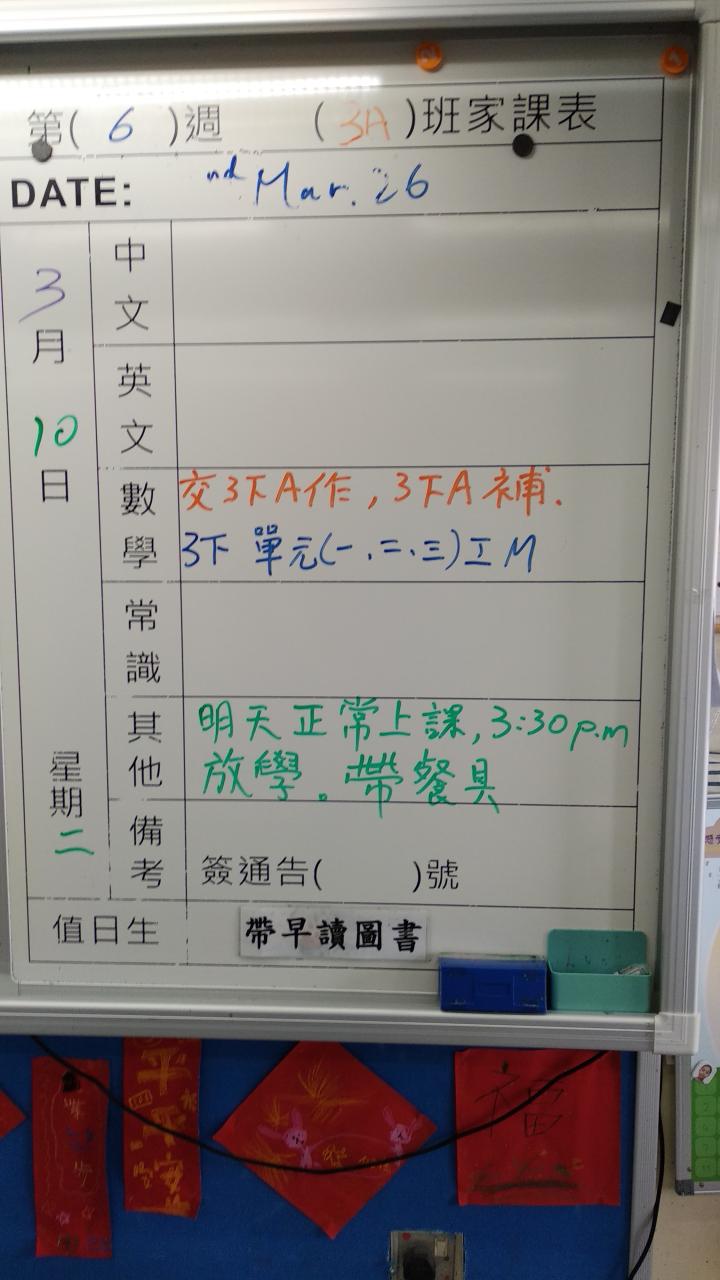 第( 6 )週 ( 3A )班家課表
DATE: nd Mar. 26
3月10日
星期二
中文
英文
數學
交3下A作, 3下A補.
3下 單元(一、二、三)工M
常識
其他
明天正常上課, 3:30p.m
放學。帶餐具
備考
簽通告( )號
值日生
帶早讀圖書
平平安
福